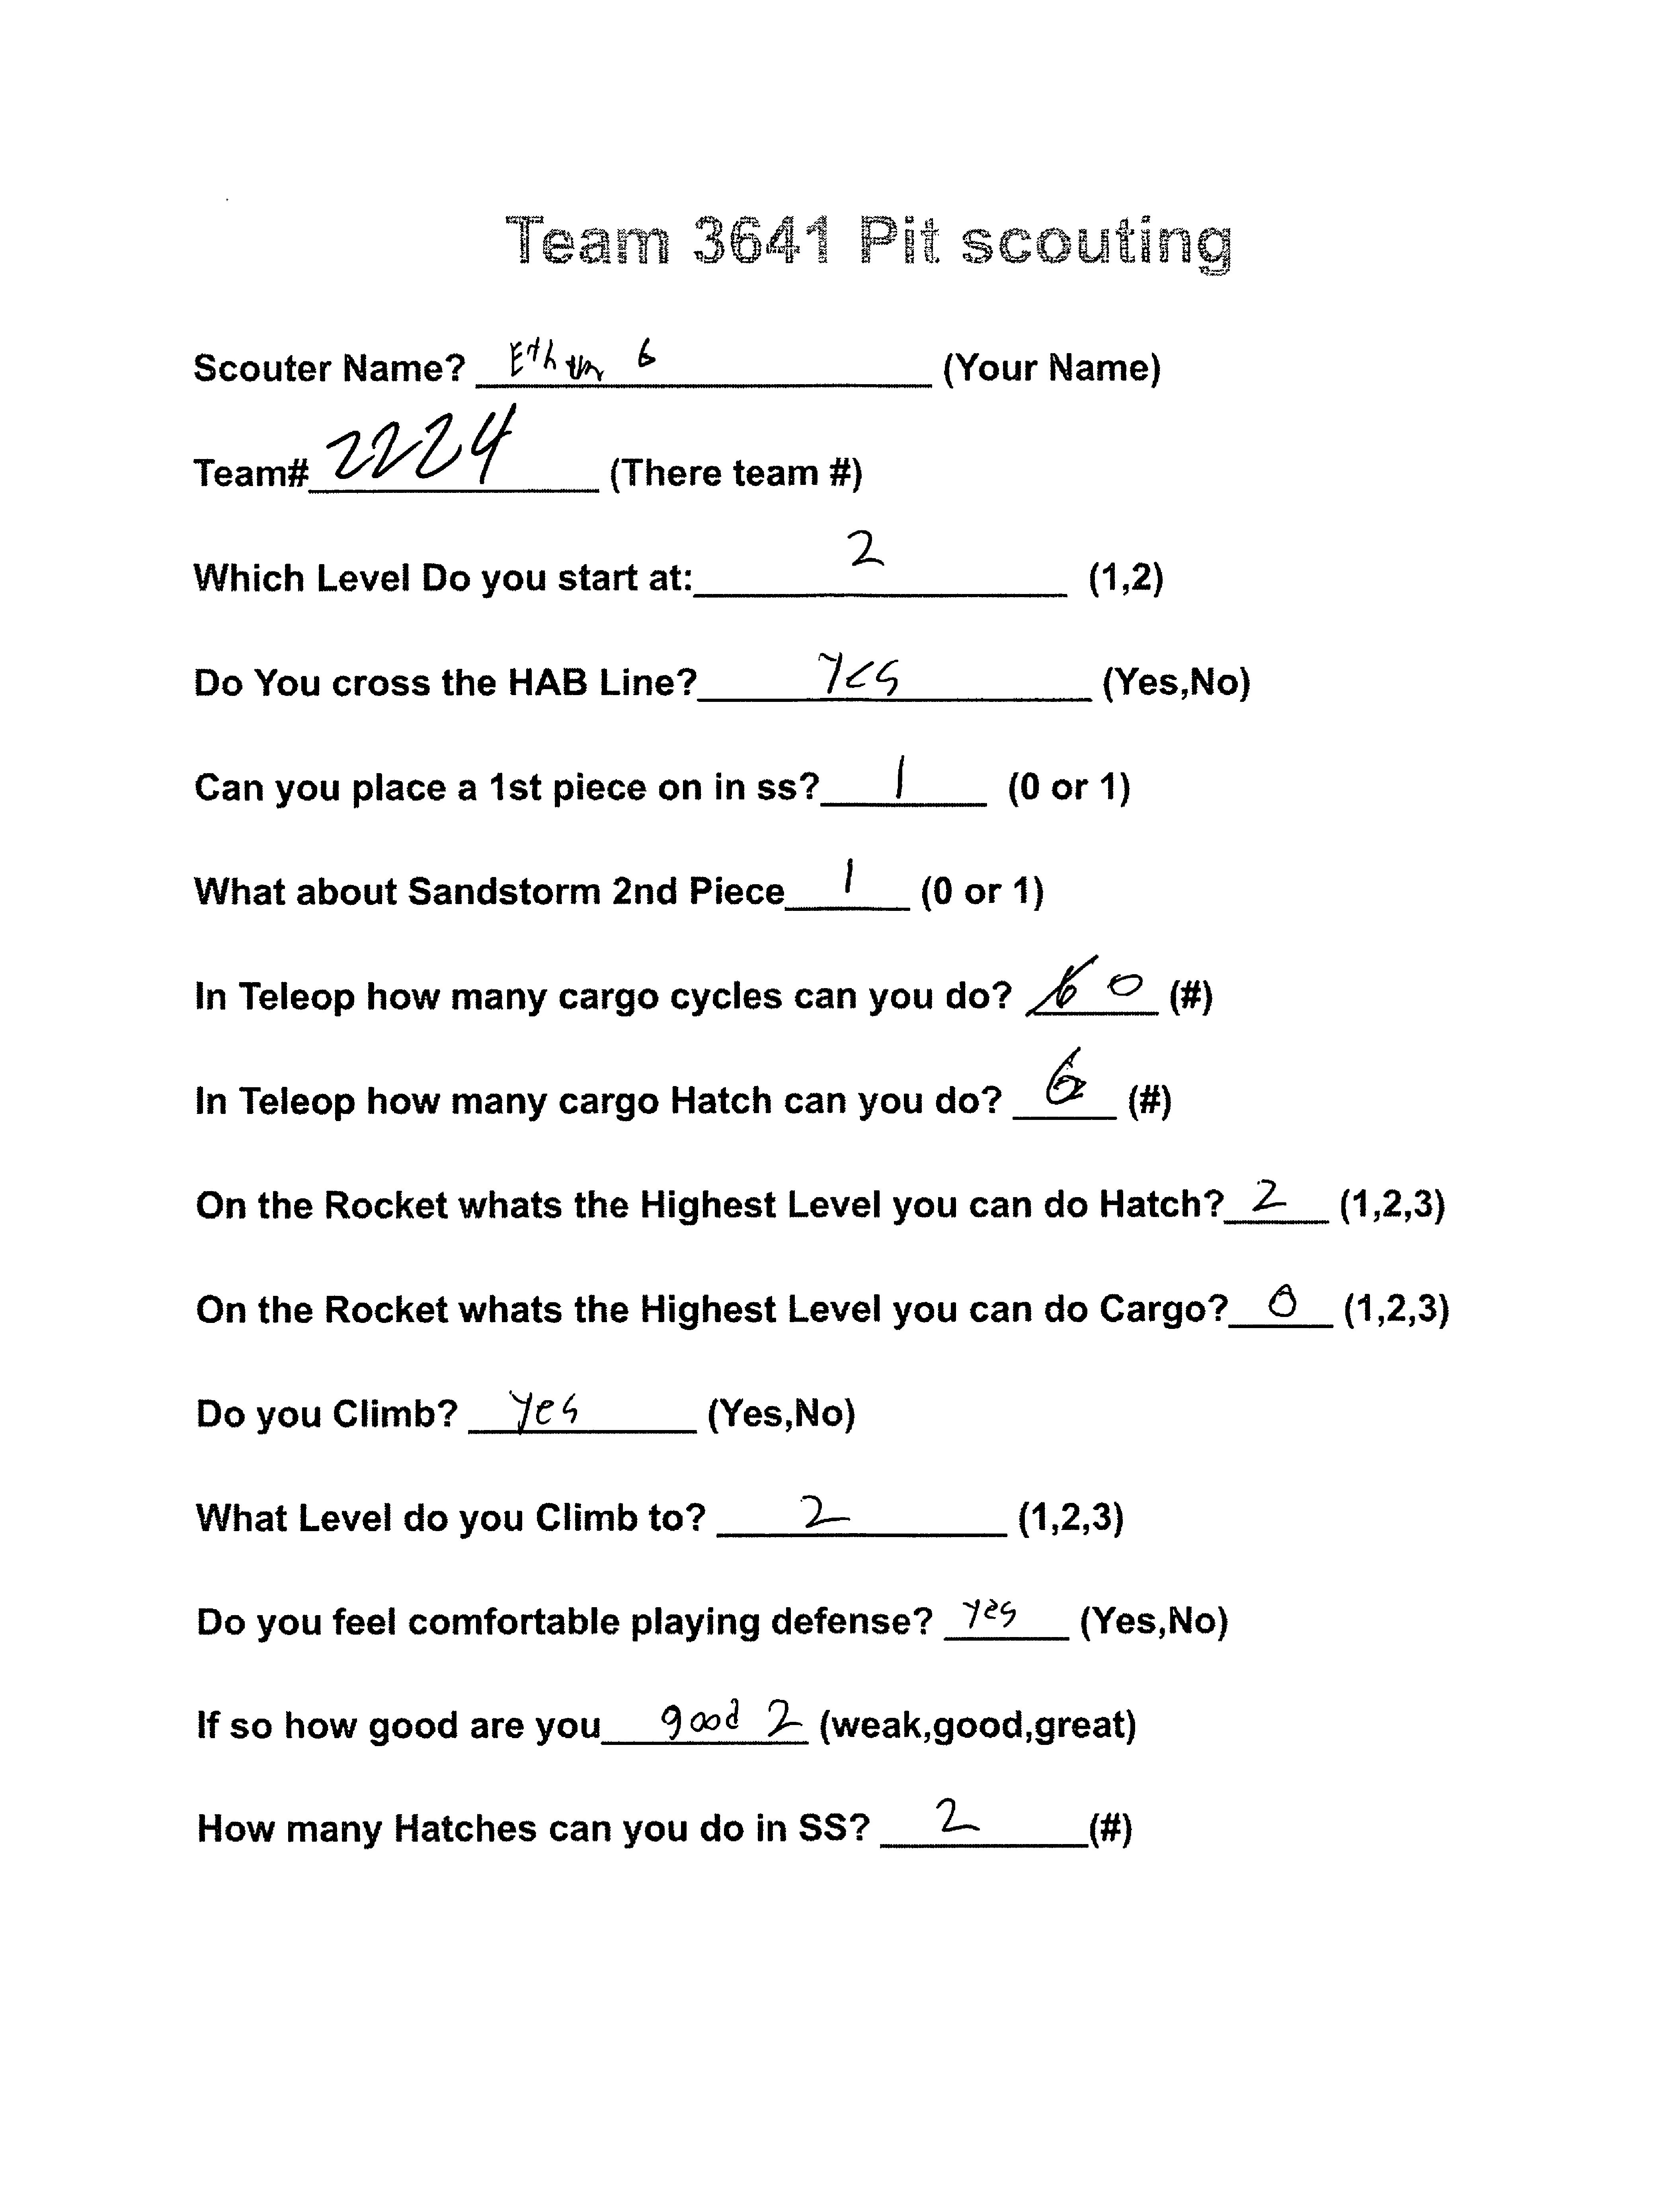 Team 3641 Pit scouting
Scouter Name? Ethan G (Your Name)
Team# 2224 (There team #)
Which Level Do you start at: 2 (1,2)
Do You cross the HAB Line? Yes (Yes,No)
Can you place a 1st piece on in ss? 1 (0 or 1)
What about Sandstorm 2nd Piece 1 (0 or 1)
In Teleop how many cargo cycles can you do? 0 (#)
In Teleop how many cargo Hatch can you do? 6 (#)
On the Rocket whats the Highest Level you can do Hatch? 2 (1,2,3)
On the Rocket whats the Highest Level you can do Cargo? 0 (1,2,3)
Do you Climb? yes (Yes,No)
What Level do you Climb to? 2 (1,2,3)
Do you feel comfortable playing defense? yes (Yes,No)
If so how good are you good 2 (weak,good,great)
How many Hatches can you do in SS? 2 (#)